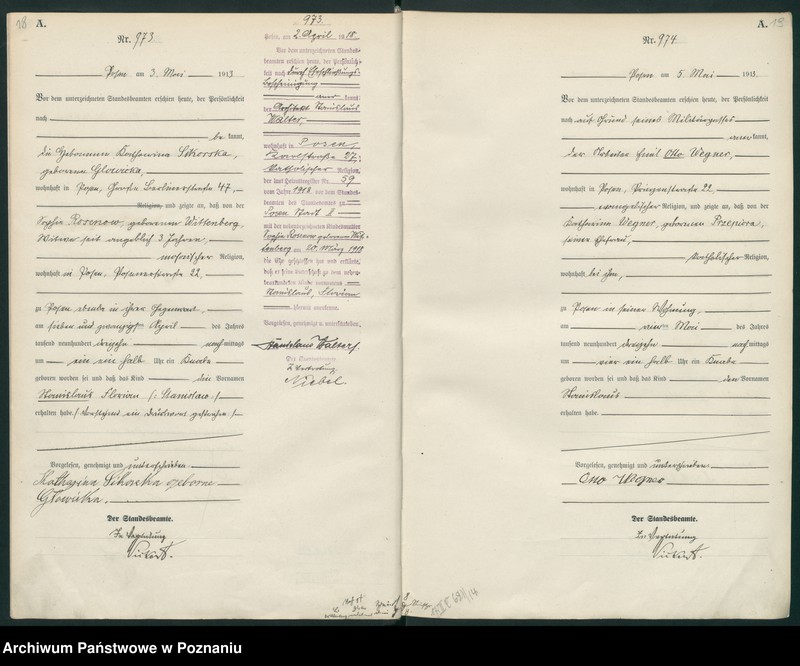 18
A.
Nr. 973
Posen am 3. Mai 1913
Vor dem unterzeichneten Standesbeamten erschien heute, der Persönlichkeit
nach
be kannt,
die Hebamme Katharina Sikorska,
geborene Glowicka,
wohnhaft in Posen, Große Berlinerstraße 47,
Religion, und zeigte an, daß von der
Sophie Rosenow, geborenen Wittenberg,
Witwe seit angeblich 3 Jahren,
Religion,
wohnhaft in Posen, Posenerstraße 22,
zu Posen ebenda in ihrer Gegenwart,
am sieben und zwanzigsten April des Jahres
tausend neunhundert dreizehn nachmittags
um ein ein halb Uhr ein Knabe
geboren worden sei und daß das Kind den Vornamen
Stanislaus Florian (: Stanislaw :)
erhalten habe. (Vorstehend ein Druckwort gestrichen.)
Vorgelesen, genehmigt und unterschrieben
Katharina Sikorska geborne
Glowicka.
Der Standesbeamte.
In Vertretung
973
Posen, am 2. April 1918.
Vor dem unterzeichneten Standes-
beamten erschien heute, der Persönlich-
keit nach durch Eheschließungs-
bescheinigung
kannt
der Architekt Stanislaus
Walter
wohnhaft in Posen,
Karlstraße 27,
katholischer Religion,
der laut Heiratsregister Nr. 59
vom Jahre 1918 vor dem Standes-
beamten des Standesamtes zu
Posen Stadt
mit der nebenbezeichneten Kindesmutter
Sophie Rosenow geborenen Wit-
tenberg am 20. März 1918
die Ehe geschlossen hat und erklärte,
daß er seine Vaterschaft zu dem neben-
Stanislaus, Florian
hiermit anerkenne.
Vorgelesen, genehmigt u. unterschrieben,
Stanislaus Walter.
Der Standesbeamte.
In Vertretung.
Niebel
A.
19
Nr. 974
Posen am 5. Mai 1913.
Vor dem unterzeichneten Standesbeamten erschien heute, der Persönlichkeit
nach auf Grund seines Militärpasses
aner kannt,
der Arbeiter Emil Otto Wegner,
wohnhaft in Posen, Prinzenstraße 22
evangelischer Religion, und zeigte an, daß von der
Katharina Wegner, geborenen Przepiora,
seiner Ehefrau,
katholischer Religion,
wohnhaft bei ihm,
zu Posen in seiner Wohnung,
am vier Mai des Jahres
tausend neunhundert dreizehn nachmittags
um vier ein halb Uhr ein Knabe
geboren worden sei und daß das Kind den Vornamen
Stanislaus
erhalten habe.
Vorgelesen, genehmigt und unterschrieben
Otto Wegner
Der Standesbeamte.
In Vertretung
Archiwum Państwowe w Poznaniu